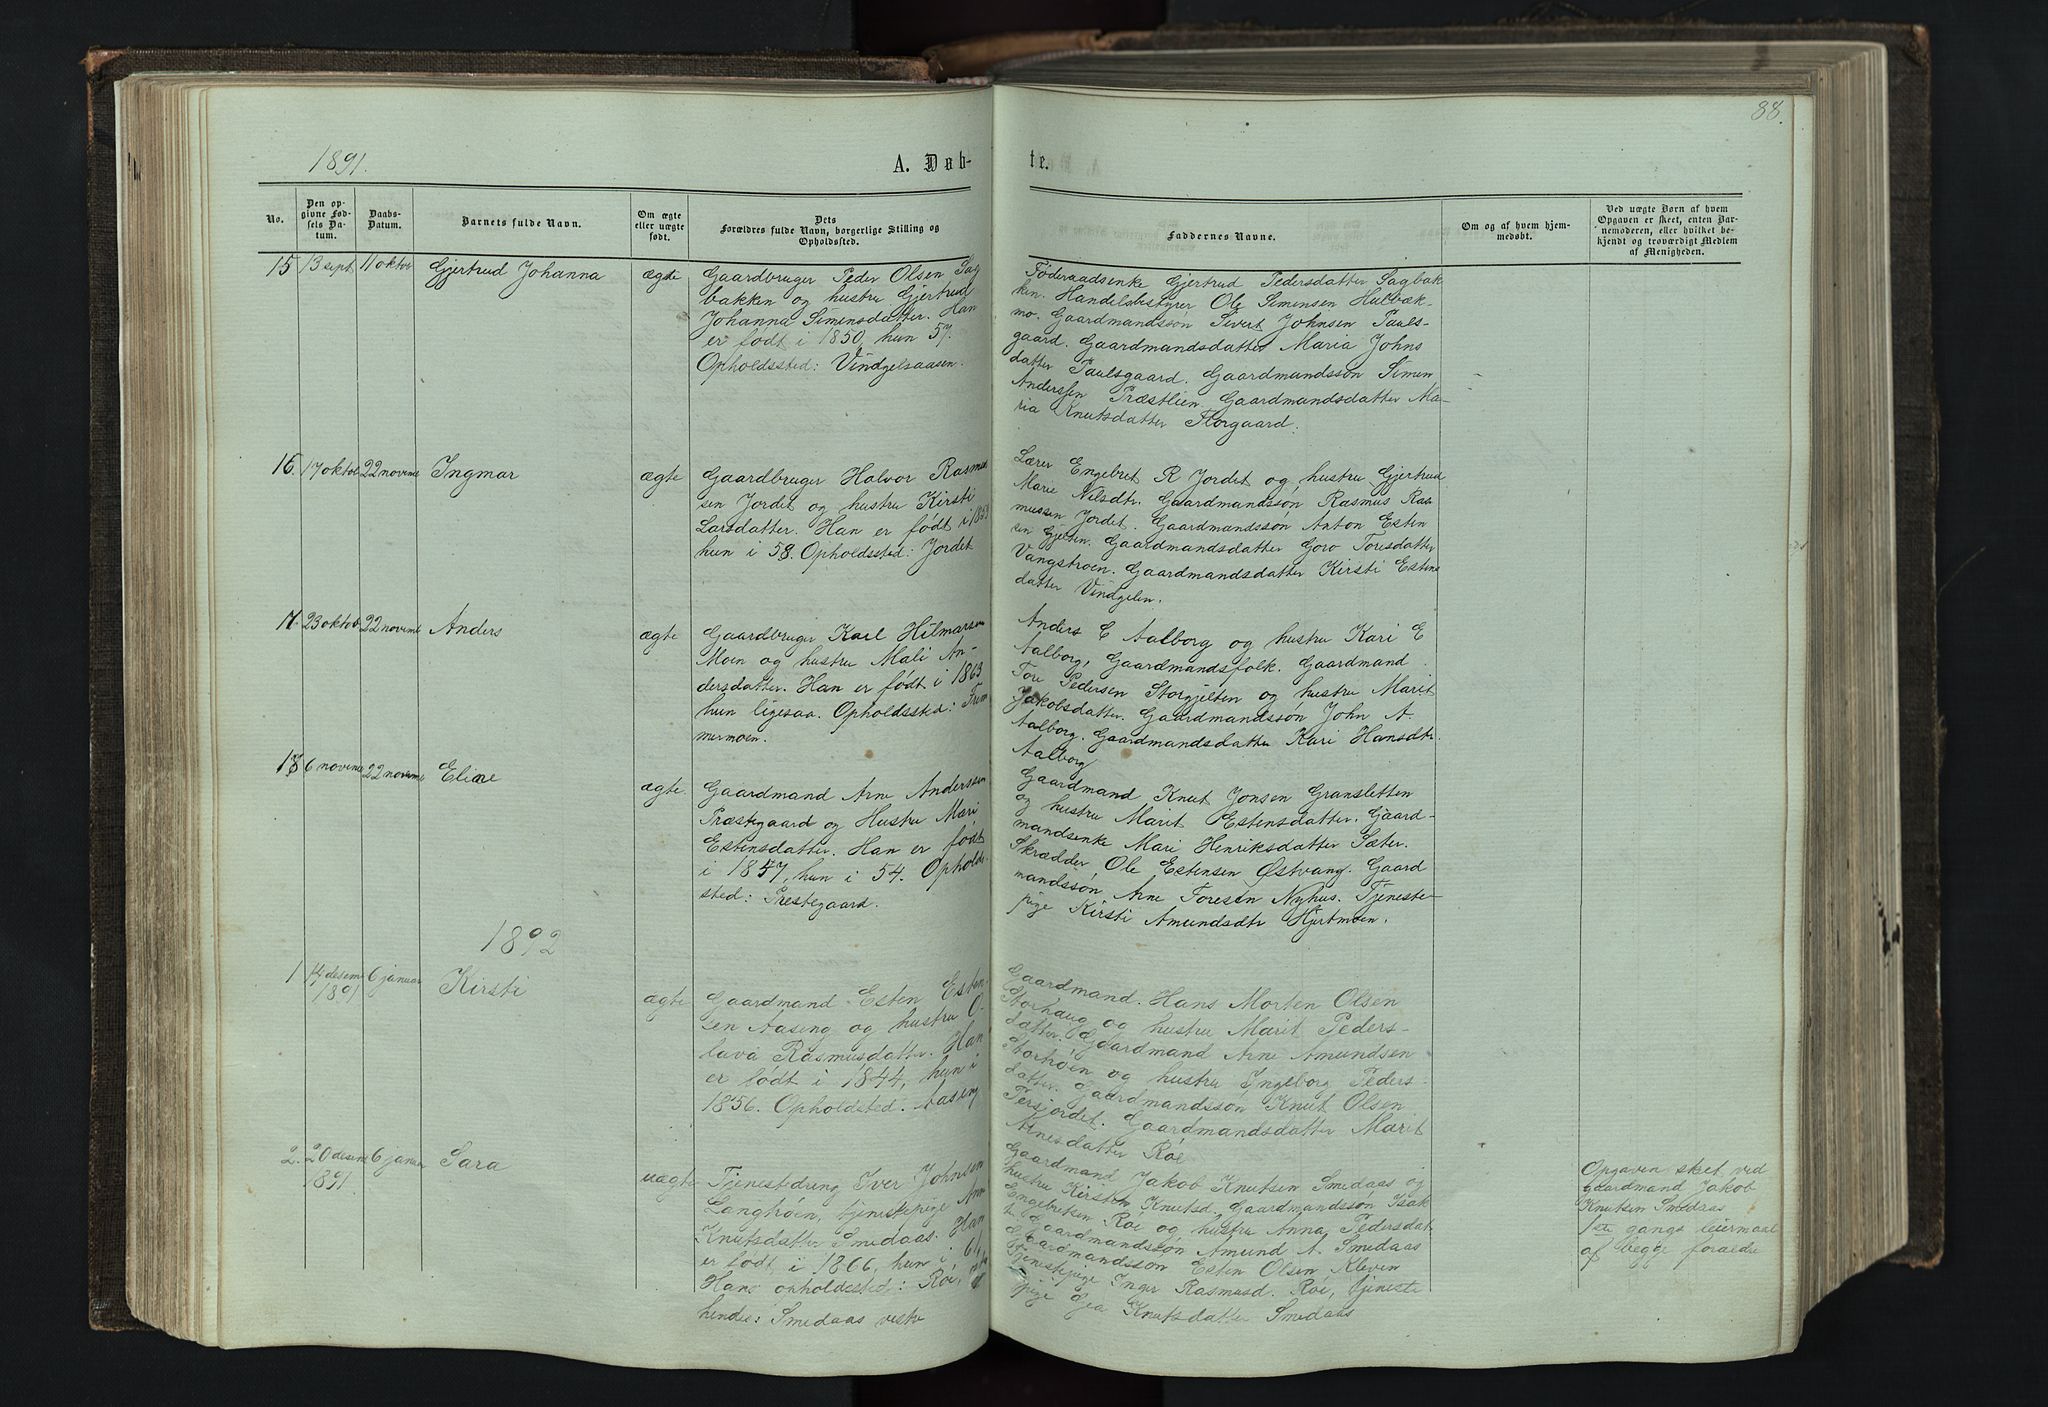 88.
1891.
A. Døb-
te.
No.
Den op-
givne Fød-
sels Da-
tum.
Daabs-
Datum.
Barnets fulde Navn.
Om ægte
eller uægte
født.
Dets
Forældres fulde Navn, borgerlige Stilling og
Opholdssted.
Faddernes Navne.
Om og af hvem hjem-
medøbt.
Ved uægte Børn af hvem
Opgaven er skeet, enten Bar-
nemoderen, eller hvilket be-
kjendt og troværdigt Medlem
af Menigheden.
15 13 sept. 11 oktor Gjertrud Johanna
ægte
Gaardbruger Peder Olsen Sag
bakken og hustru Gjertrud
Johanna Simensdatter. Han
er født i 1850, hun 57.
Opholdssted: Vindgelsaasen.
Føderaadsenke Gjertrud Pedersdatter Sagbak
ken. Handelsbestyrer Ole Simensen Hulbæk-
mo. Gaardmandssøn Sivert Johnsen Pauls-
gaard. Gaardmandsdatter Maria Johns
datter Paulsgaard. Gaardmandssøn Simen
Anderssen Præstlien Gaardmandsdatter Ma-
ria Knutsdatter Storgaard.
16 17 oktob 22 novemb Ingmar
ægte
Gaardbruger Halvor Rasmus
sen Jordet og hustru Kirsti
Larsdatter. Han er født i 1853
hun i 58. Opholdssted: Jordet
Lærer Engebret R Jordet og hustru Gjertrud
Marie Nilsdtr. Gaardmandssøn Rasmus Ras
mussen Jordet. Gaardmandssøn Anton Esten
sen Gjelten. Gaardmandsdatter Goro Toresdatter
Vangstroen. Gaardmandsdatter Kirsti Estens
datter Vindgelen.
17. 23 oktob 22 novemb Anders
ægte
Gaardbruger Karl Hilmarsen
Moen og hustru Mali An-
dersdatter. Han er født i 1863
hun ligesaa. Opholdssted: Trøn
mermoen.
Anders E Aalborg og hustru Kari E
Aalborg, Gaardmandsfolk. Gaardmand
Tore Pedersen Storgjelten og hustru Marit
Jakobsdatter. Gaardmandssøn John A.
Aalborg. Gaardmandsdatter Kari Hansdtr.
Aalborg
18 6 novemb 22 novemb Eline
ægte
Gaardmand Arne Anderssen
Præstegaard og Hustru Mari
Estensdatter. Han er født
i 1857, hun i 54. Opholds-
sted: Prestegaard.
Gaardmand Knut Jonsen Gransletten
og hustru Marit Estensdatter. Gaard-
mandsenke Mari Henriksdatter Sæter.
Skrædder Ole Estensen Østvang. Gaard
mandssøn Arne Toresen Nyhus. Tjeneste-
pige Kirsti Amundsdtr Hjertmoen.
1892
1 14 desemb 6 januar Kirsti
1891
ægte
Gaardmand Esten Esten-
sen Aaseng og hustru O-
lava Rasmusdatter. Han
er født i 1844, hun i
1856. Opholdsted. Aaseng
Gaardmand. Hans Morten Olsen
Storhaug og hustru Marit Peders-
datter. Gaardmand Arne Amundsen
Stortrøen og hustru Ingeborg Peders-
datter. Gaardmandssøn Knut Olsen
Persjordet. Gaardmandsdatter Marit
Arnesdatter Røe
2. 20 desemb 6 januar Sara
1891.
uægte
Tjenestedreng Iver Johnsen
Langtrøen, tjenestepige Ann
Knutsdatter Smedaas. Han
er født i 1866, hun i 61
Hans opholdested: Røe,
hendes: Smedaas vestre
Gaardmand Jakob Knutsen Smedaas og
hustru Kirsti Knutsd. Gaardmandssøn Isak
Engebretsen Røe og hustru Anna Pedersdat
tr. Gaardmandssøn Amund A. Smedaas
Gaardmandssøn Esten Olsen Kleven
Tjenestepige Inger Rasmusd. Røe, tjeneste
pige Gea Knutsdatter Smedaas
Opgaven skeet ved
gaardmand Jakob
Knutsen Smedaas
1ste gangs leiermaal
af begge foraldre